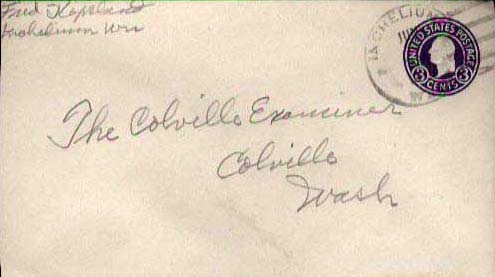 Fred
Inchelium Wn
INCHELIUM
UNITED STATES POSTAGE
3 3
CENTS
The Colville Examiner
Colville
Wash